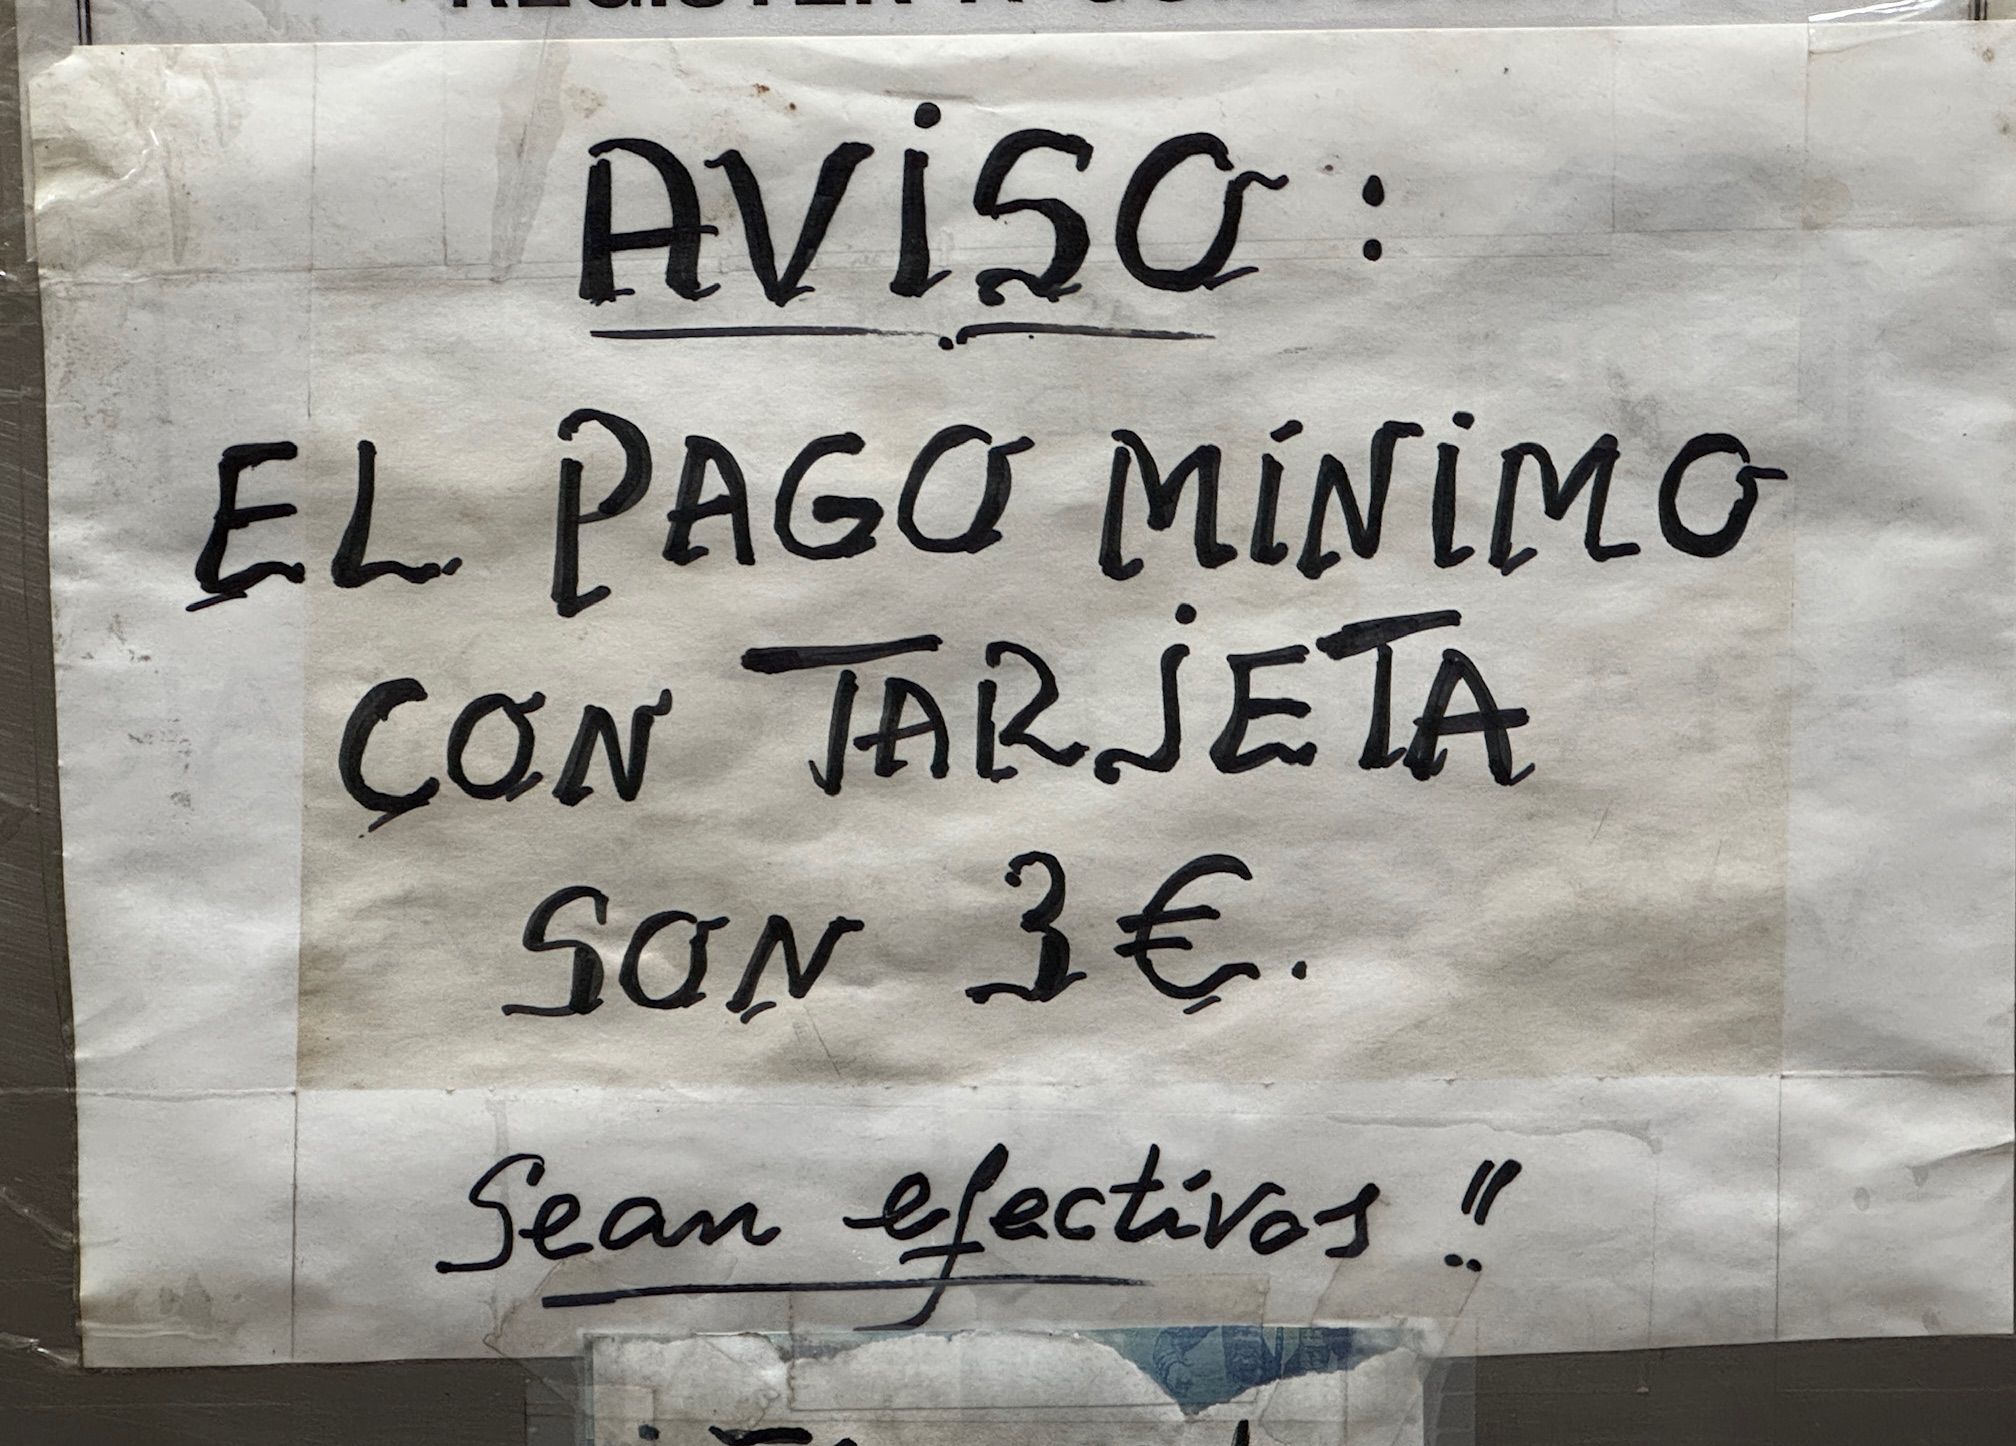 AVISO:
EL PAGO MÍNIMO
CON TARJETA
SON 3€.
Sean efectivos!!